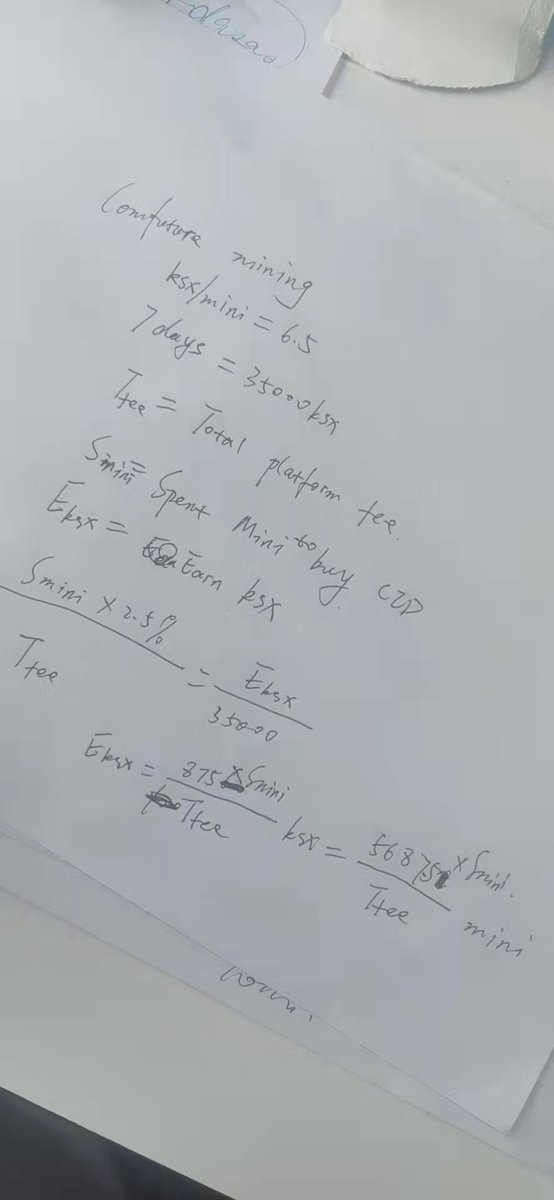 Comfuture mining
ksx/mini = 6.5
7 days = 35000 ksx
Tfee = Total platform fee.
Smini = Spent Mini to buy CZD
Eksx = Earn ksx
Smini × 2.5% / Tfee = Eksx / 35000
Eksx = 875 × Smini / Tfee ksx = 5687.5 × Smini. / Tfee mini